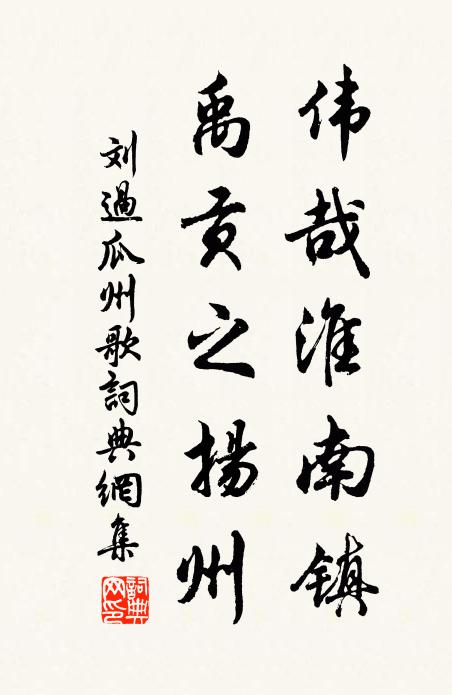 伟哉淮南镇
禹贡之揚州
刘過瓜州歌詞典網集
詞典网印